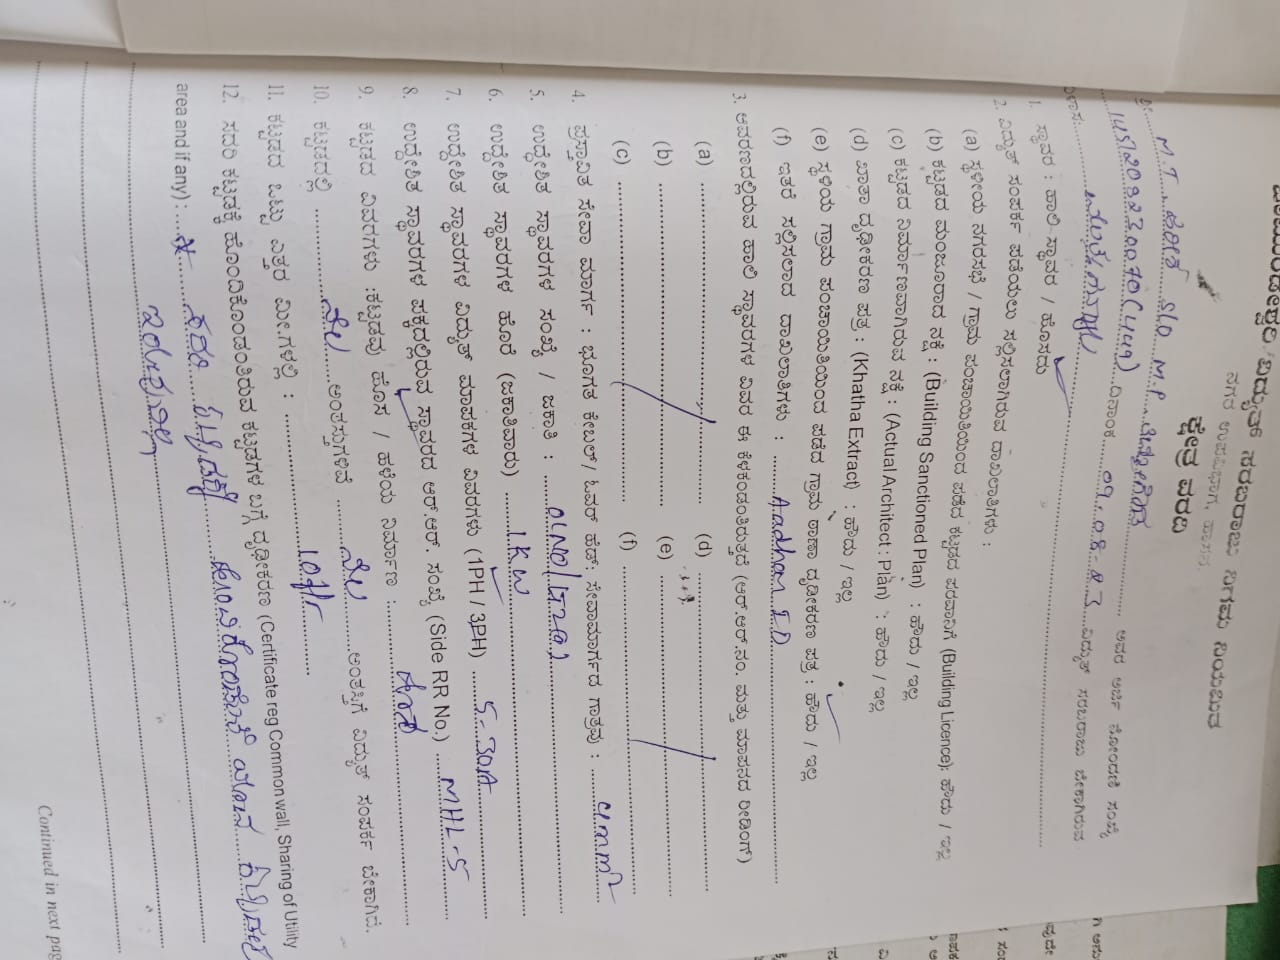 ವಿದ್ಯುತ್ ಸರಬರಾಜು ನಿಗಮ ನಿಯಮಿತ
ನಗರ ಉಪವಿಭಾಗ, ಹಾಸನ
ಕ್ಷೇತ್ರ ವರದಿ
M.T. S/O M.P.
ಅವರ ಅರ್ಜಿ ನೋಂದಣಿ ಸಂಖ್ಯೆ
ದಿನಾಂಕ 09.08.23 ವಿದ್ಯುತ್ ಸರಬರಾಜು ಬೇಕಾಗಿರುವ
1. ಸ್ಥಾವರ : ಹಾಲಿ ಸ್ಥಾವರ / ಹೊಸದು ✓
2. ವಿದ್ಯುತ್ ಸಂಪರ್ಕ ಪಡೆಯಲು ಸಲ್ಲಿಸಲಾಗಿರುವ ದಾಖಲಾತಿಗಳು :
(a) ಸ್ಥಳೀಯ ನಗರಸಭೆ / ಗ್ರಾಮ ಪಂಚಾಯಿತಿಯಿಂದ ಪಡೆದ ಕಟ್ಟಡದ ಪರವಾನಿಗೆ (Building Licence): ಹೌದು / ಇಲ್ಲ
(b) ಕಟ್ಟಡದ ಮಂಜೂರಾದ ನಕ್ಷೆ : (Building Sanctioned Plan) : ಹೌದು / ಇಲ್ಲ
(c) ಕಟ್ಟಡದ ನಿರ್ಮಾಣವಾಗಿರುವ ನಕ್ಷೆ : (Actual Architect : Plan) : ಹೌದು / ಇಲ್ಲ
(d) ಖಾತಾ ದೃಢೀಕರಣ ಪತ್ರ : (Khatha Extract) : ಹೌದು / ಇಲ್ಲ
(e) ಸ್ಥಳೀಯ ಗ್ರಾಮ ಪಂಚಾಯಿತಿಯಿಂದ ಪಡೆದ ಗ್ರಾಮ ಠಾಣಾ ದೃಢೀಕರಣ ಪತ್ರ : ಹೌದು / ಇಲ್ಲ
(f) ಇತರೆ ಸಲ್ಲಿಸಲಾದ ದಾಖಲಾತಿಗಳು : Aadhar I.D
3. ಆವರಣದಲ್ಲಿರುವ ಹಾಲಿ ಸ್ಥಾವರಗಳ ವಿವರ ಈ ಕೆಳಕಂಡಂತಿರುತ್ತದೆ (ಆರ್.ಆರ್.ನಂ. ಮತ್ತು ಮಾಪನದ ರೀಡಿಂಗ್)
(a) (d)
(b) (e)
(c) (f)
4. ಪ್ರಸ್ತಾವಿತ ಸೇವಾ ಮಾರ್ಗ : ಭೂಗತ ಕೇಬಲ್/ ಓವರ್ ಹೆಡ್. ಸೇವಾಮಾರ್ಗದ ಗಾತ್ರವು : 4mm²
5. ಉದ್ದೇಶಿತ ಸ್ಥಾವರಗಳ ಸಂಖ್ಯೆ / ಜಕಾತಿ :
6. ಉದ್ದೇಶಿತ ಸ್ಥಾವರಗಳ ಹೊರೆ (ಜಕಾತಿವಾರು) 1KW
7. ಉದ್ದೇಶಿತ ಸ್ಥಾವರಗಳ ವಿದ್ಯುತ್ ಮಾಪಕಗಳ ವಿವರಗಳು (1PH / 3PH) ✓ 5-30A
8. ಉದ್ದೇಶಿತ ಸ್ಥಾವರಗಳ ಪಕ್ಕದಲ್ಲಿರುವ ಸ್ಥಾವರದ ಆರ್.ಆರ್. ಸಂಖ್ಯೆ (Side RR No.) MHL-5
9. ಕಟ್ಟಡದ ವಿವರಗಳು :ಕಟ್ಟಡವು ಹೊಸ / ಹಳೆಯ ನಿರ್ಮಾಣ : ಹಳೆ
10. ಕಟ್ಟಡದಲ್ಲಿ ನೆಲ ಅಂತಸ್ತುಗಳಿವೆ ನೆಲ ಅಂತಸ್ತಿಗೆ ವಿದ್ಯುತ್ ಸಂಪರ್ಕ ಬೇಕಾಗಿದೆ.
11. ಕಟ್ಟಡದ ಒಟ್ಟು ಎತ್ತರ ಮೀ.ಗಳಲ್ಲಿ :
12. ಸದರಿ ಕಟ್ಟಡಕ್ಕೆ ಹೊಂದಿಕೊಂಡಂತಿರುವ ಕಟ್ಟಡಗಳ ಬಗ್ಗೆ ದೃಢೀಕರಣ (Certificate reg Common wall, Sharing of Utility
area and if any) : ಸದರಿ ಕಟ್ಟಡಕ್ಕೆ ಹೊಂದಿಕೊಂಡಂತೆ ಯಾವ ಕಟ್ಟಡಗಳು
ಇರುವುದಿಲ್ಲ
Continued in next pag